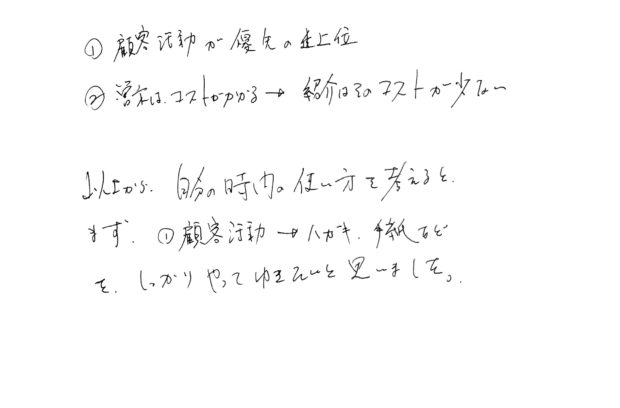 ① 顧客活動が優先の最上位
② 営業は、コストがかかる → 紹介はそのコストが少ない
以上から、自分の時間の使い方を考えると、
まず、①顧客活動 → ハガキ、手紙など
を、しっかりやってゆきたいと思いました。